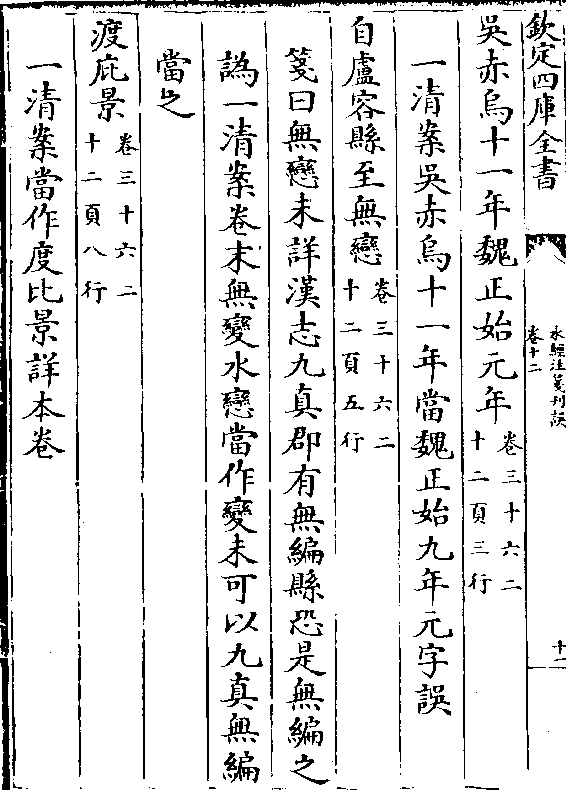 欽定四庫全書
水經注箋刊誤
卷十二
十二
吳赤烏十一年魏正始元年
卷三十六二
十二頁三行
一清案吳赤烏十一年當魏正始九年元字誤
自盧容縣至無戀
卷三十六二
十二頁五行
箋曰無戀未詳漢志九真郡有無編縣恐是無編之
譌一清案卷末無變水戀當作變未可以九真無編
當之
渡庇景
卷三十六二
十二頁八行
一清案當作度比景詳本卷